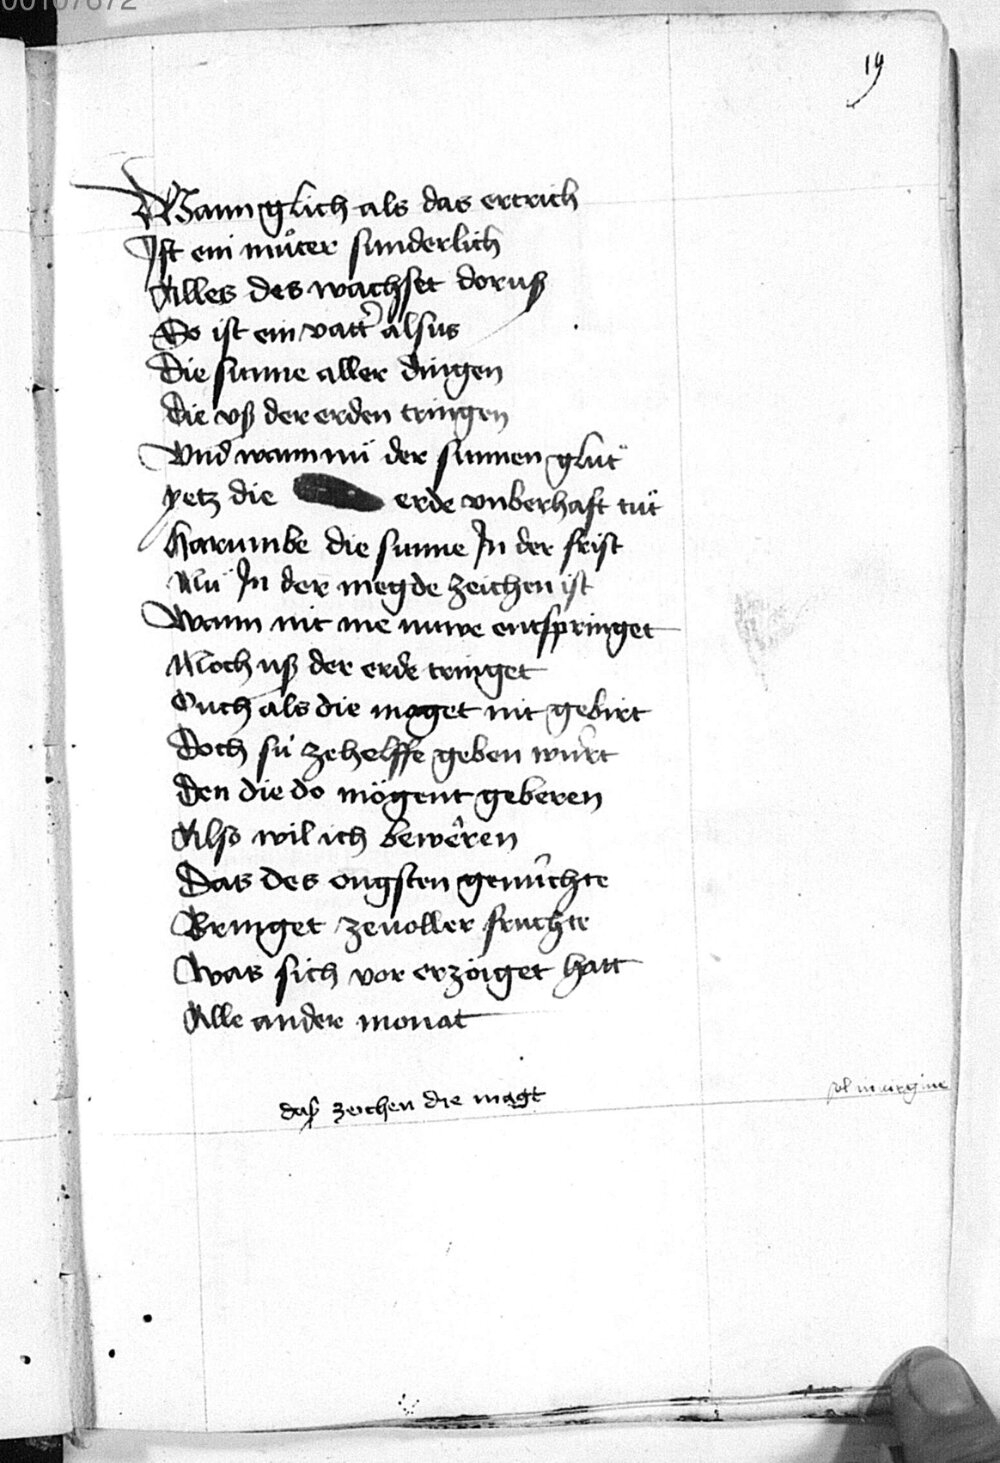 00107872
19
Wann glich als das ertrich
Ist ein muͦter sunderlich
Alles des wachset dorusß
So ist ein vatter alsus
Die sunne aller dingen
Die vß der erden tringen
Vnd wann nuͥ der sunnen gluͥt
yetz die erde vnberhaft tuͥt
Harumbe die sunne In der frist
Nuͥ In der megde zeichen ist
Wann nit me nuwe entspringet
Noch uß der erde tringet
Ouch als die maget nit gebirt
Doch suͥ zehelffe geben wuͥrt
Den die do mögent geberen
Also wil ich beweren
Das des ougsten genuͥchte
Bringet zevoller fruchte
Was sich vor erzöiget hatt
Alle ander monat
daß zeichen die magt